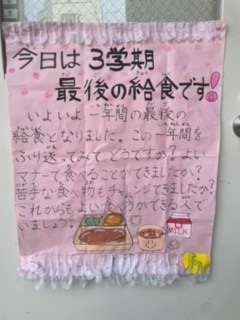 今日は3学期
最後の給食です!
いよいよ一年間の最後の
給食となりました。この一年間を
ふり返ってみてどうですか？よい
マナーで食べることができましたか？
苦手な食べ物もチャレンジできましたか？
これからもよい食べ方ができる人で
いましょう。
MILK